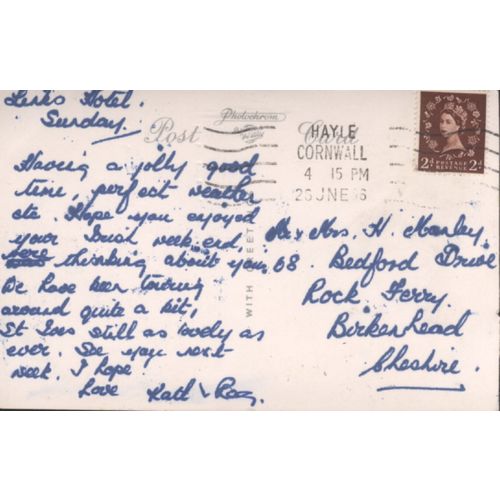 Links Hotel.
Sunday.
Having a jolly good
time, perfect weather
etc. Hope you enjoyed
your Irish week-end,
thinking about you.
We have been touring
around quite a bit,
St Ives still as lovely as
ever. See you next
week. I hope.
Love Kath & Roy.
Post Card
Photochrom
WITH GREETINGS
HAYLE
CORNWALL
4 15 PM
26 JNE 56
2d POSTAGE REVENUE 2d
Mr & Mrs. H. Manley,
68. Bedford Drive
Rock Ferry.
Birkenhead
Cheshire.